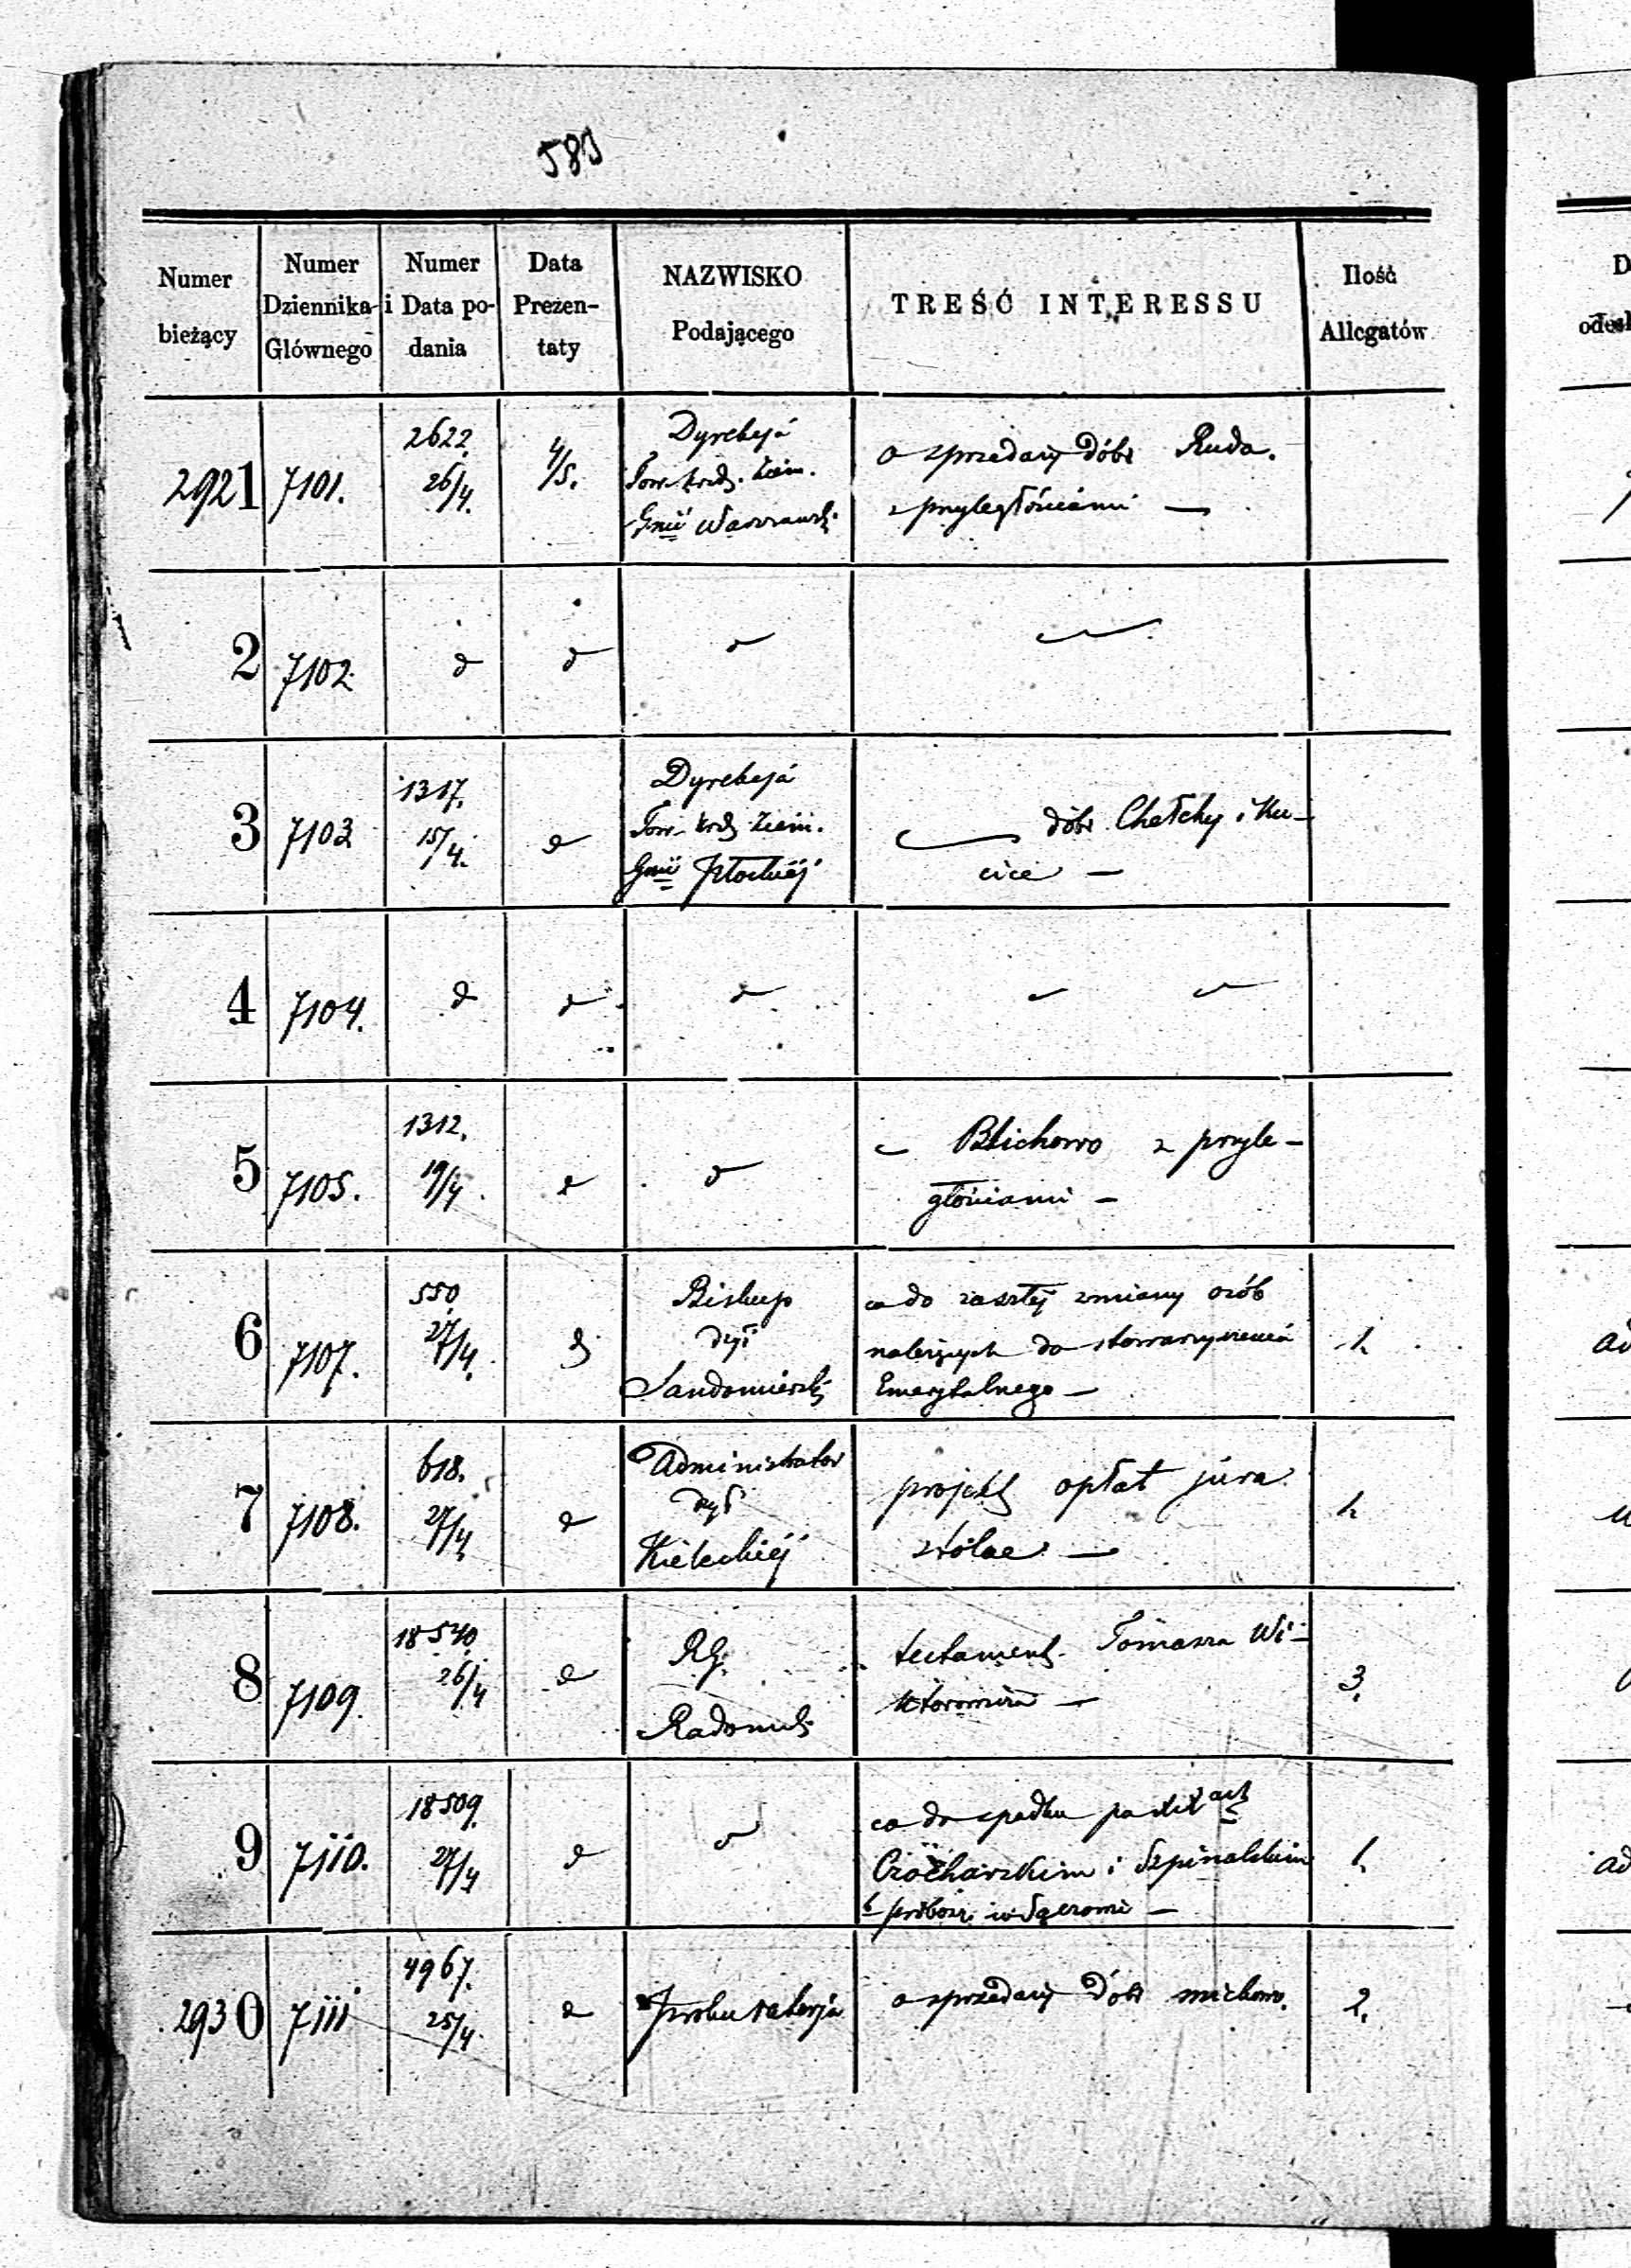 583
Numer bieżący
Numer Dziennika Głównego
Numer i Data podania
Data Prezentaty
NAZWISKO Podającego
TREŚĆ INTERESSU
Ilość Allegatów
2921 7101. 2622. 26/4. 4/5.
Dyrekcjá
Tow. Kred. Ziem.
Gnii Warszawsk.
o sprzedaży dóbr Ruda.
z przyległościami —
2 7102. d d d
3 7103 1317. 15/4. d
Dyrekcjá
Tow. Kred. Ziem.
Gnii Płockiéj
dóbr Chełchy i Ku-
cice —
4 7104. d d d
5 7105. 1312. 19/4. d d
Blichowo z przyle-
głościami —
6 7107. 550. 27/4.
Biskup
dyi
Sandomiersk
co do zaszłéj zmiany osób
należących do stowarzyszeniá
Emerytalnego —
1.
7 7108. 618. 27/4. d
Administrator
dyi
Kieleckiéj
projekt opłat jura
stolae —
1.
8 7109. 18540. 26/4 d
RG.
Radomsk
testament Tomasza Wi-
3.
9 7110. 18509. 27/4 d d
co do spadku po
i Szpinalskim
1.
2930 7111 4967. 25/4. d
Prokuratorja
o sprzedaży dóbr
2.